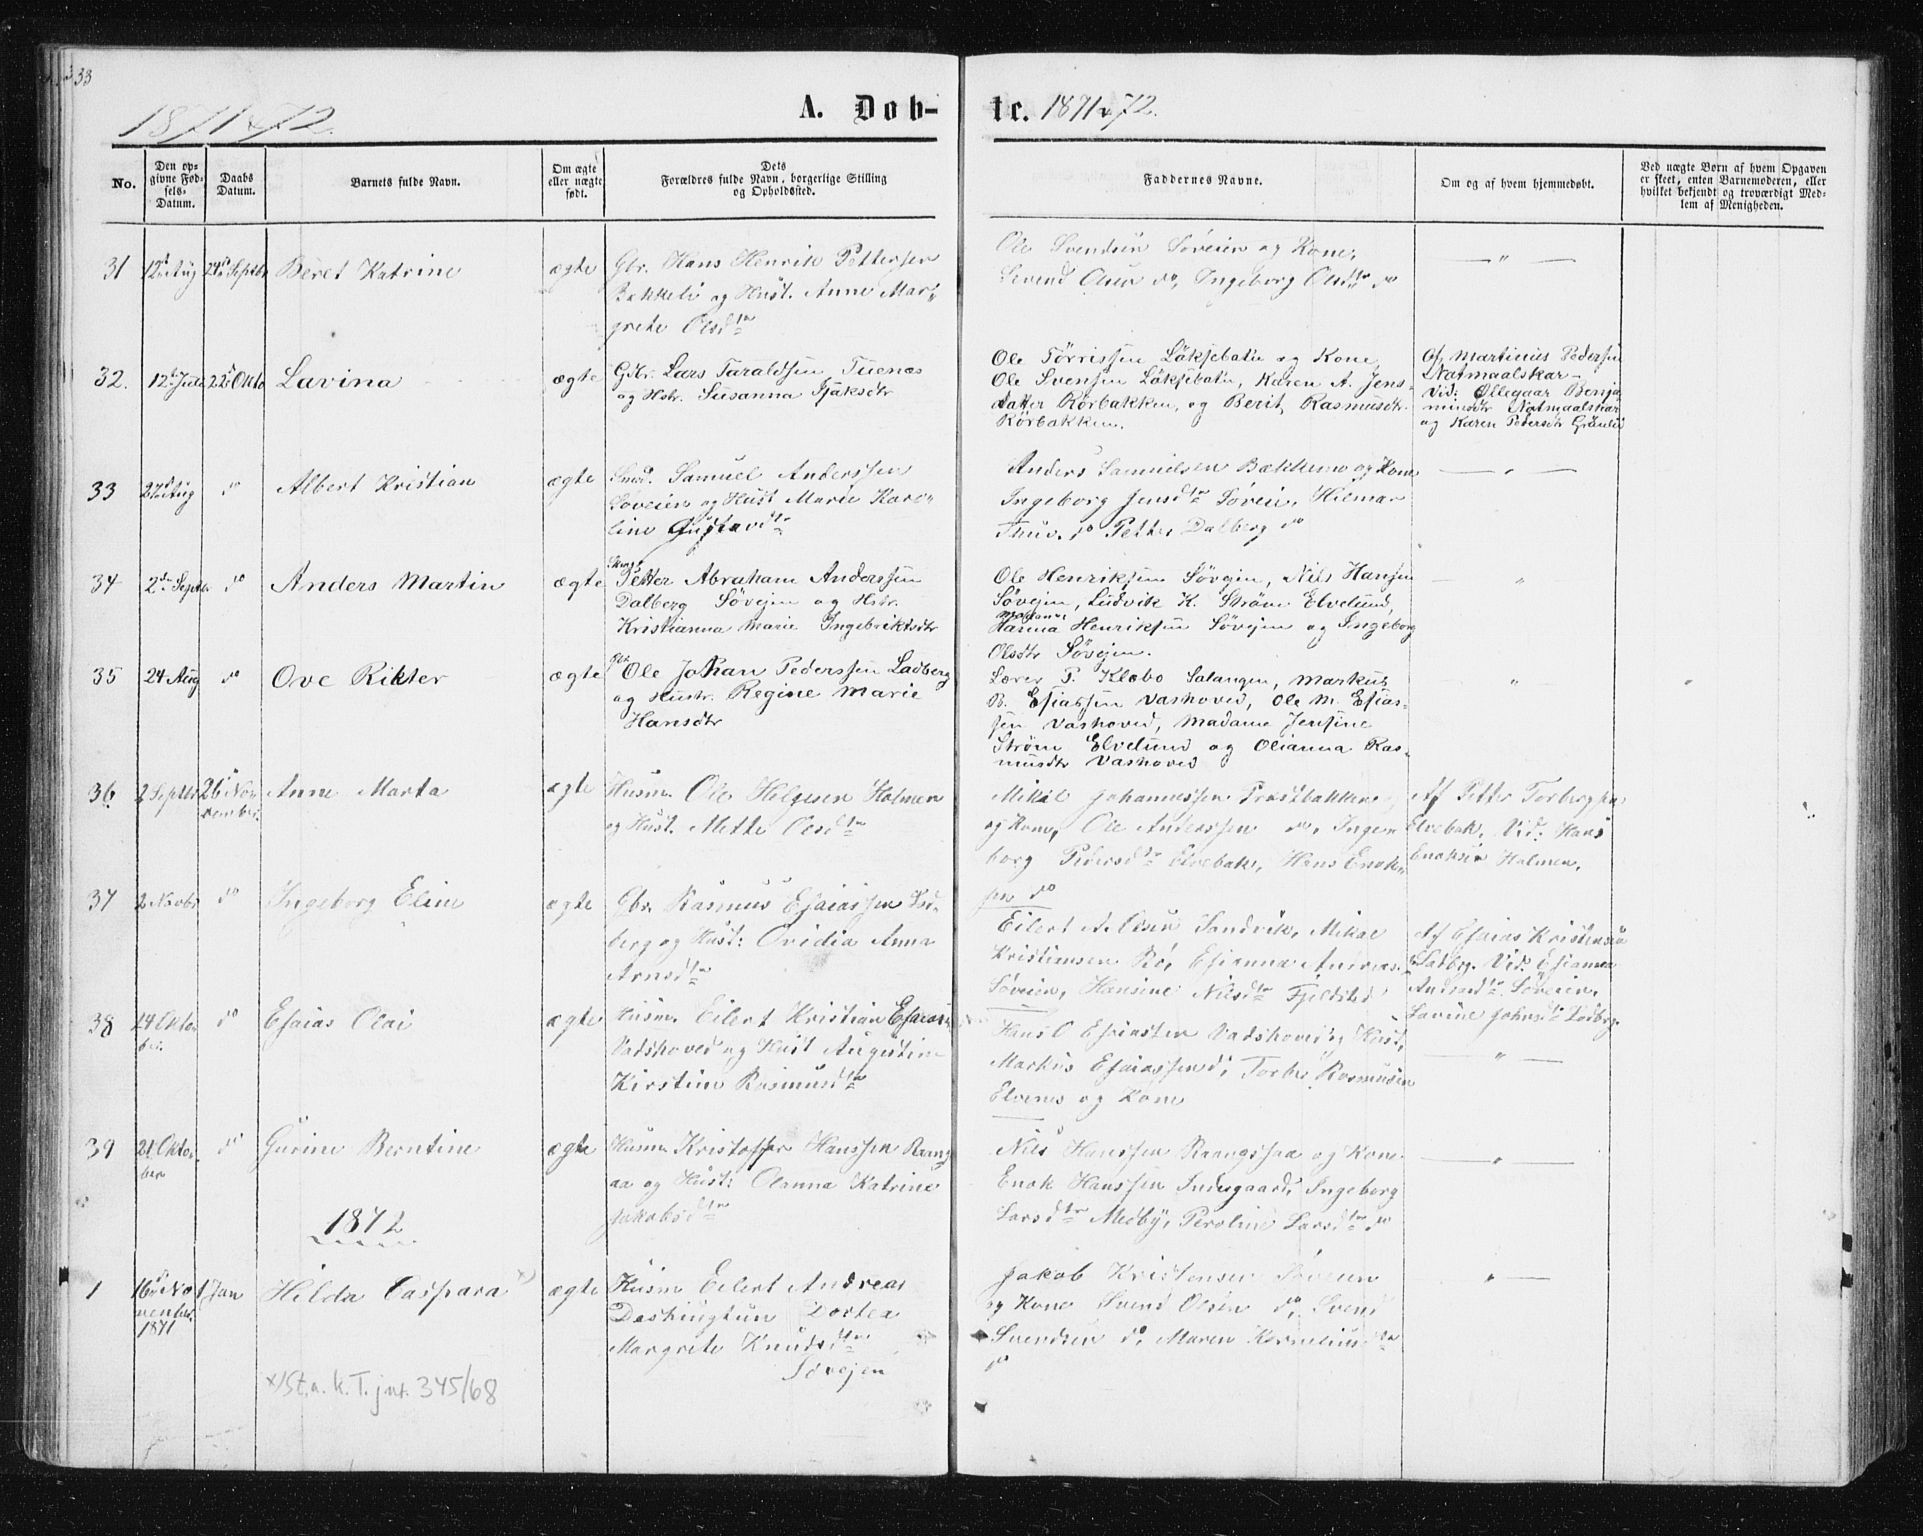 33
1871 & 72.
A. Døb-
te. 1871 & 72.
No.
Den op-
givne Fød-
sels-
Datum.
Daabs
Datum.
Barnets fulde Navn.
Om ægte
eller uægte
født.
Dets
Forældres fulde Navn, borgerlige Stilling
og Opholdssted.
Faddernes Navne.
Om og af hvem hjemmedøbt.
Ved uægte Børn af hvem Opgaven
er skeet, enten Barnemoderen, eller
hvilket bekjendt og troværdigt Med-
lem af Menigheden.
31 12te Aug 24de Septbr Beret Katrine ægte Gbr. Hans Henrik Pettersen
Bakkeli og Hust. Anne Mar-
grete Olsdtr
Ole Svendsen Søveien og Kone,
Svend Olsen do, Ingeborg Olsdtr do
— " —
32. 12te Juli 22de Oktb Lavina ægte Gdbr. Lars Taraldsen Tuenæs
og Hstr. Susanna Sjaksdtr
Ole Tørrissen Løksebatn og Kone,
Ole Svensen Løksebatn, Karen A. Jens-
datter Rørbakken, og Berit Rasmusdtr.
Rørbakken.
Af Martinius Pedersen
Natmaalskar
Vid: Ollegaar Benja-
minsdtr Natmaalskar
og Karen Pedersdtr Grønlid
33 27de Aug do Albert Kristian ægte Smd. Samuel Anderssen
Søveien og Hust Marie Karo-
line Gustavdtr
Anders Samuelsen Bakkemo og Kone
Ingeborg Jensdtr Søvei, Hilmar
Thuv. do Petter Dalberg do
— " —
34 2den Septbr do Anders Martin ægte Petter Abraham Anderssen
Dalberg Søvejen og Hstr.
Kristianna Marie Ingebriktsdtr
Ole Henriksen Søvejen, Nils Hansen
Søvejen, Ludvik K. Strøm Elvelund,
Madame
Hanna Henriksen Søvejen og Ingeborg
Olsdtr Søvejen.
— "
35 24 Aug do Ove Rikter ægte Gbr Ole Johan Pederssen Ladberg
og Hustr. Regine Marie
Hansdtr
Lærer P. Klæbo Salangen, Markus
B. Esiassen Vashoved, Ole M. Esias-
sen Vashoved, Madame Jensine
Strøm Elvelund og Olianna Ras-
musdtr Vashoved
"
36 2 Septbr 26de No-
vember. Anne Marta ægte Husm. Ole Helgesen Holmen
og Hust. Mette Olsdtr
Mikal Johannessen Præstbakken
og Kone, Ole Anderssen do, Inge-
borg Pedersdtr Elvebak, Hans Enok-
sen do
Af Petter Torbergsen
Elvebak. Vid: Hans
Enoksen Holmen.
37 2 Novbr do Ingeborg Eline ægte Gbr. Rasmus Esaiassen Lad-
berg og Hust: Ovidia Anna
Arnsdtr
Eilert A. Olsen Sandvik, Mikal
Kristiansen Bø, Esianna Andreas-
Søveien, Hansine Nilsdtr Fjeldsted
Af Esaias Kristensen
Ladbrg. Vid. Esianna
Andreasdtr Søveien,
Lovine Johnsdtr Ladbrg
38 24 Okto-
ber. do Esaias Olai ægte Husm. Eilert Kristian Esaiassen
Vadshoved og Hust Augustine
Kirstine Rasmusdtr
Hans O Esaiassen Vadshoved og Hust,
Markus Esaiassen do, Torber Rasmussen
Elvenes og Kone
— " —
39 21 Okto-
ber do Gurine Berntine ægte Husm Kristoffer Hanssen Raang
aa og Hust: Olanna Katrine
Jakobsdtr
Nils Hanssen Raangssaa og Kone
Enok Hanssen Indregaard, Ingeborg
Larsdtr Medby, Peroline Larsdtr do
— " —
1872
1 16de No-
vember.
1871 1 Jan Hilda Caspara x) ægte Husm Eilert Andreas
Daskingtun Dortea
Margrete Knudsdtr
Søvejen
Jakob Kristensen Søveien
og Kone Svend Olsen do, Svend
Svendsen do, Maren Korneliusdtr
do
" —
x) St.a. k. T. jnr. 345/68